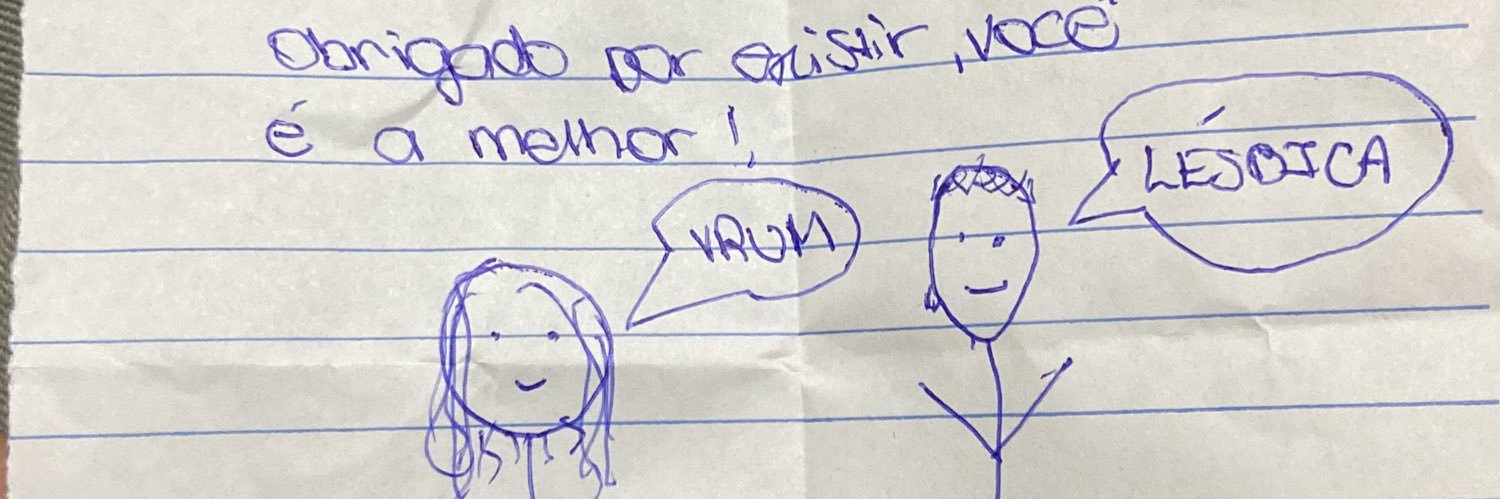 Obrigado por existir, você
é a melhor!
VRUM
LÉSBICA